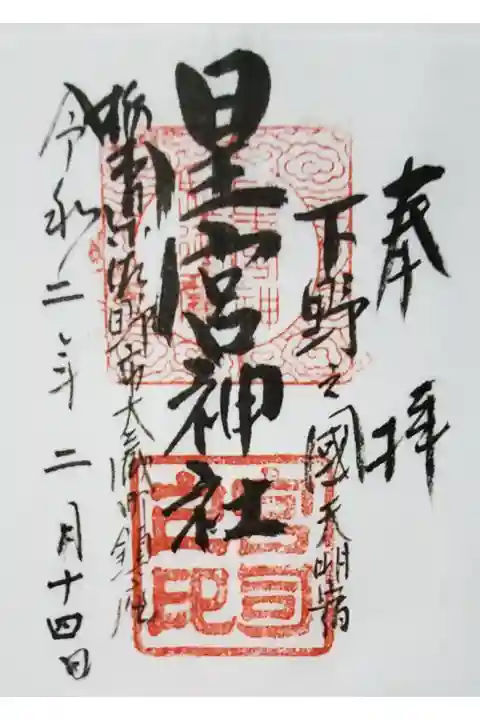 奉拝
下野之國天明宿
星宮神社
栃木県佐野市大蔵町鎮座
令和二年二月十四日
宮司
之印